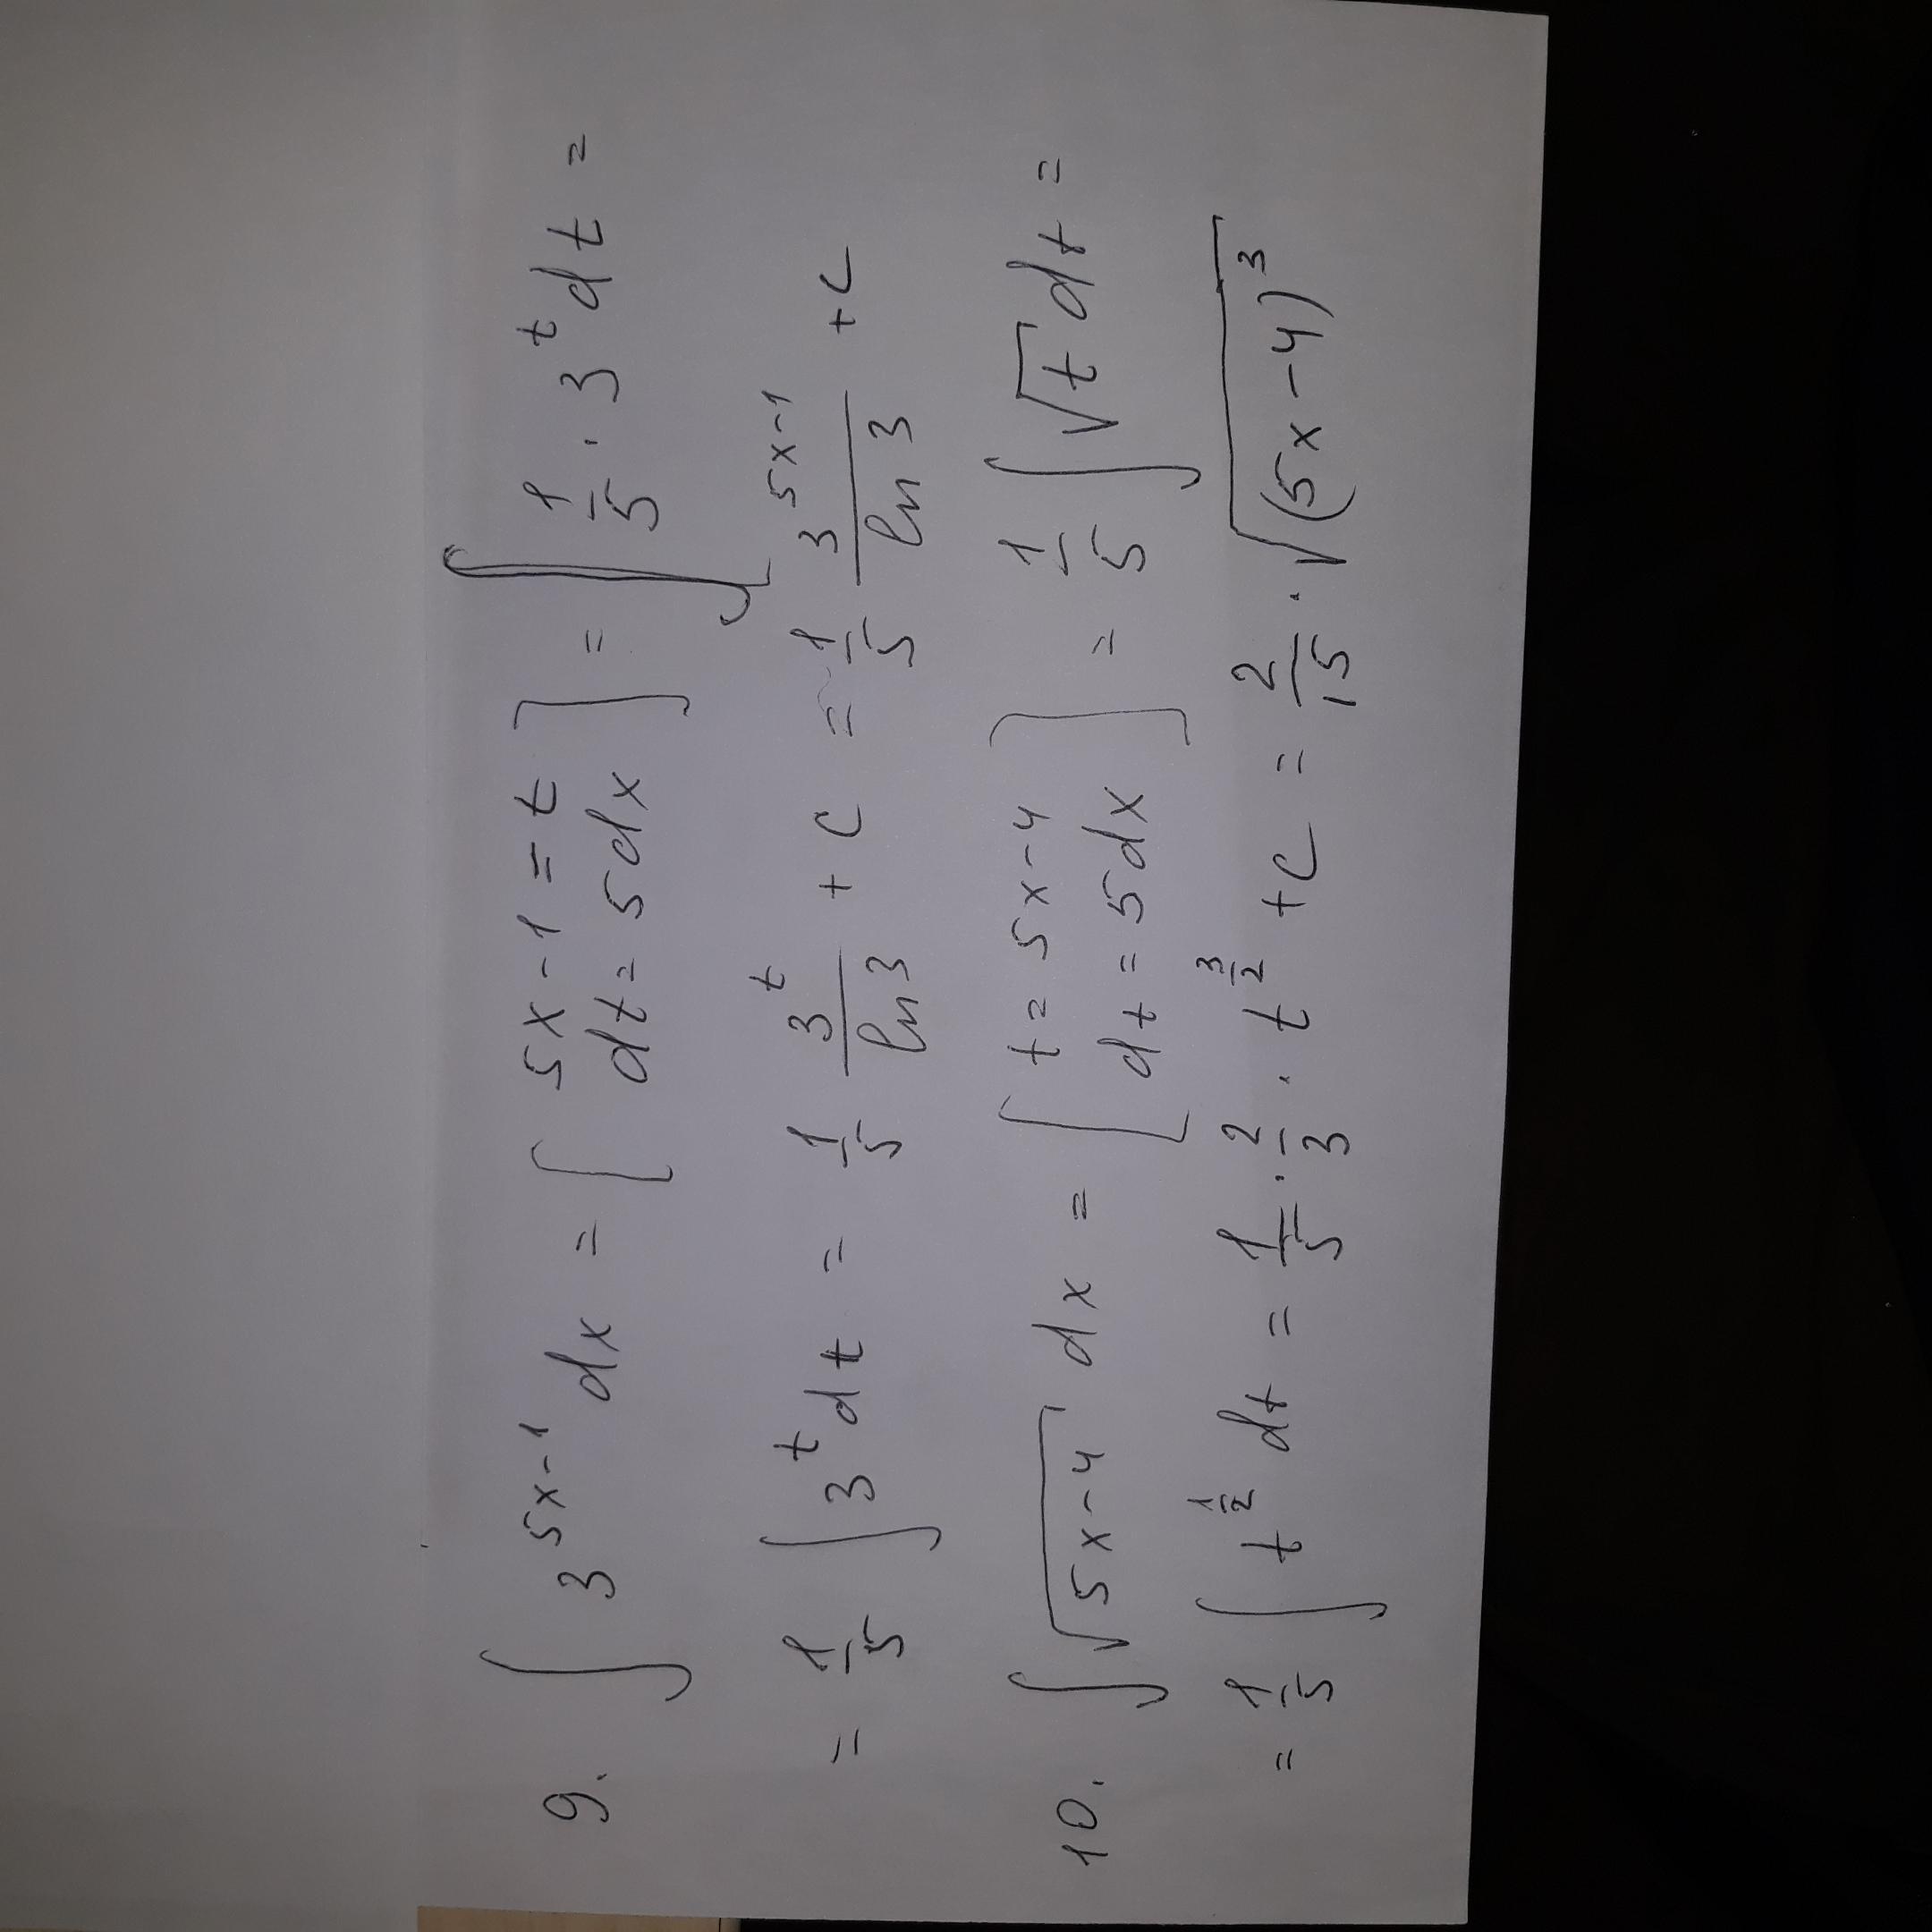 9. ∫ 3^(5x-1) dx = [ 5x-1=t dt=5dx ] = ∫ 1/5 · 3^t dt =
= 1/5 ∫ 3^t dt = 1/5 3^t/ln3 + C = 1/5 3^(5x-1)/ln 3 + C
10. ∫ √(5x-4) dx = [ t=5x-4 dt=5dx ] = 1/5 ∫ √t dt =
= 1/5 ∫ t^(1/2) dt = 1/5 · 2/3 · t^(3/2) + C = 2/15 · √((5x-4)^3)